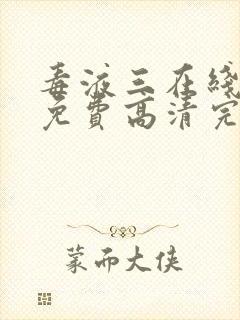 毒液三在线
免费高清完
蒙面大侠